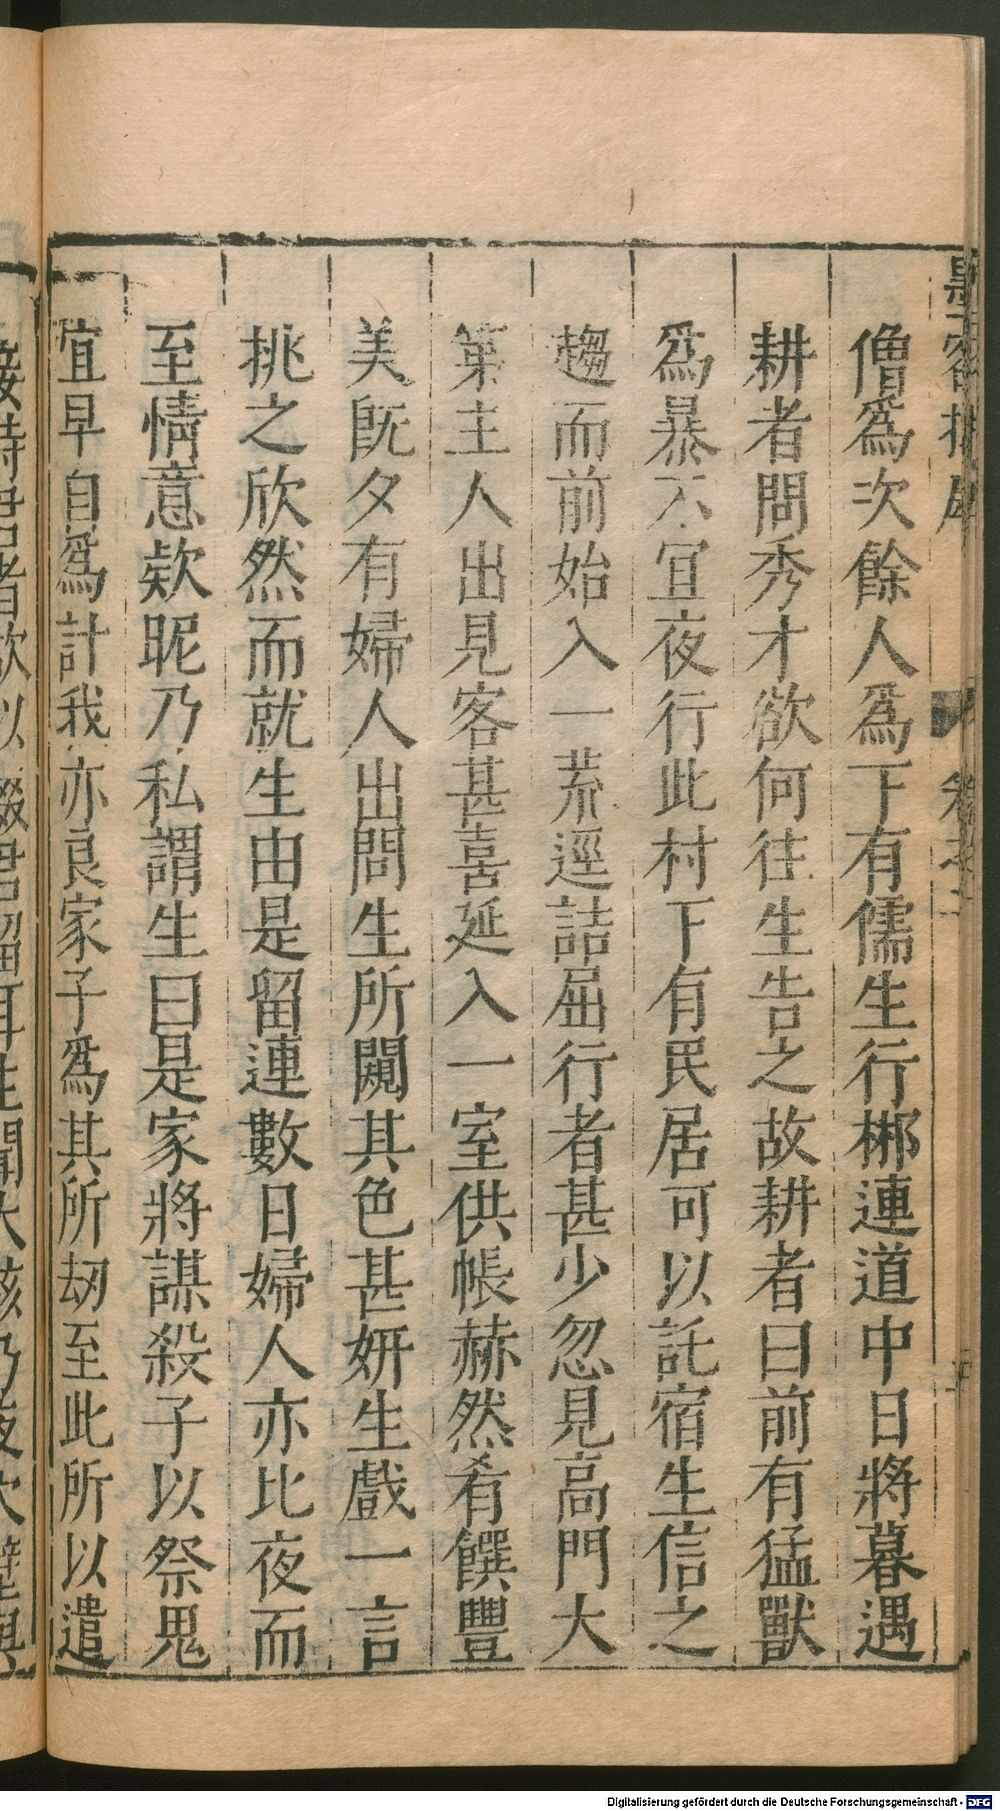 僧爲次餘人爲下有儒生行郴連道中日將暮遇
耕者問秀才欲何往生告之故耕者曰前有猛獸
爲暴不宜夜行此村下有民居可以託宿生信之
趨而前始入一荒逕詰屈行者甚少忽見高門大
第主人出見客甚喜延入一室供帳赫然肴饌豐
美旣夕有婦人出問生所闚其色甚妍生戲一言
挑之欣然而就生由是留連數日婦人亦比夜而
至情意欵昵乃私謂生曰是家將謀殺子以祭鬼
宜早自爲計我亦良家子爲其所刼至此所以遣
Digitalisierung gefördert durch die Deutsche Forschungsgemeinschaft - DFG